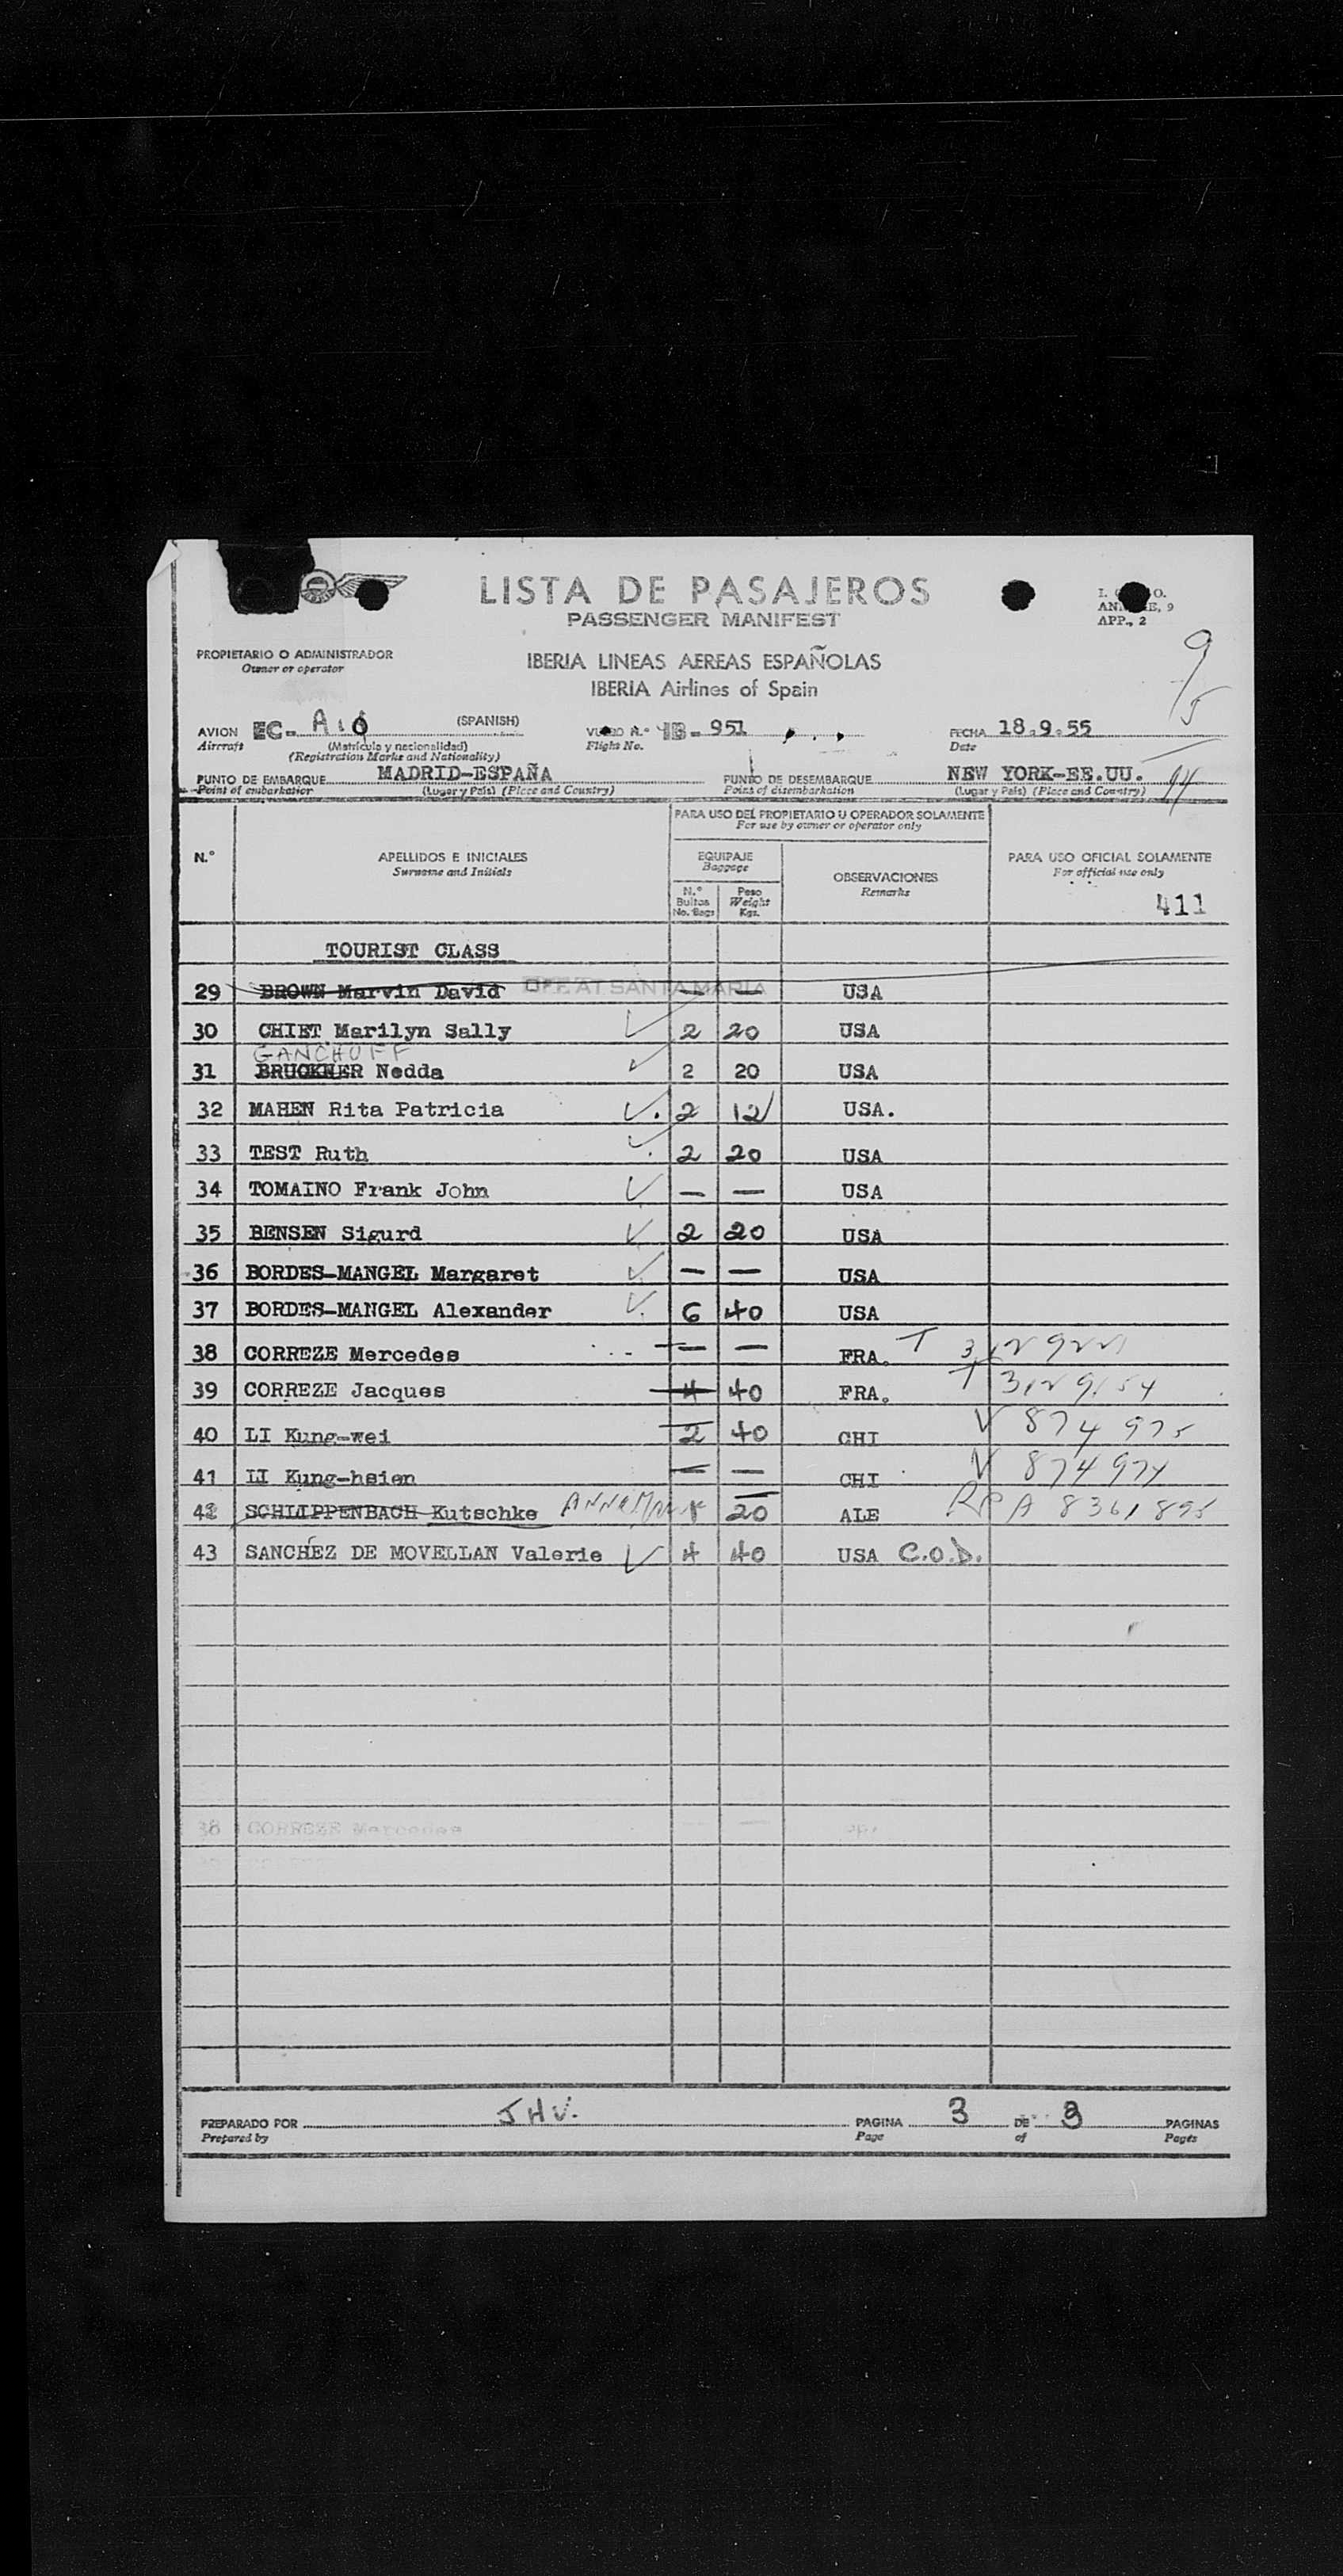 LISTA DE PASAJEROS
PASSENGER MANIFEST
I. O.
AN E, 9
APP., 2
9/5
PROPIETARIO O ADMINISTRADOR
Owner or operator
IBERIA LINEAS AEREAS ESPAÑOLAS
IBERIA Airlines of Spain
AVION EC- (SPANISH) N.º IB-951 FECHA 18.9.55
Aircraft (Matrícula y nacionalidad) Flight No. Date
(Registration Marks and Nationality)
PUNTO DE EMBARQUE MADRID-ESPAÑA PUNTO DE DESEMBARQUE NEW YORK-EE.UU.
Point of embarkation (Lugar y País) (Place and Country) Point of disembarkation (Lugar y País) (Place and Country)
PARA USO DEL PROPIETARIO U OPERADOR SOLAMENTE
For use by owner or operator only
N.º APELLIDOS E INICIALES EQUIPAJE OBSERVACIONES PARA USO OFICIAL SOLAMENTE
Surname and Initials Baggage Remarks For official use only
N.º Bultos No. Bags Peso Weight Kgs. 411
TOURIST CLASS
29 BROWN Marvin David OFF AT SANTA MARIA — — USA
30 CHIET Marilyn Sally 2 20 USA
GANCHUFF
31 BRUCKNER Nedda 2 20 USA
32 MAHEN Rita Patricia 2 12 USA.
33 TEST Ruth 2 20 USA
34 TOMAINO Frank John — — USA
35 BENSEN Sigurd 2 20 USA
36 BORDES-MANGEL Margaret — — USA
37 BORDES-MANGEL Alexander 6 40 USA
38 CORREZE Mercedes — — FRA. T
39 CORREZE Jacques 4 40 FRA. T
40 LI Kung-wei 2 40 CHI V 874 975
41 LI Kung-hsien — — CHI V 874974
42 SCHLIPPENBACH Kutschke 20 ALE A 8361895
43 SANCHEZ DE MOVELLAN Valerie 4 40 USA C.O.D.
38 CORREZE Mercedes
PREPARADO POR J H V. PAGINA 3 DE 3 PAGINAS
Prepared by Page of Pages